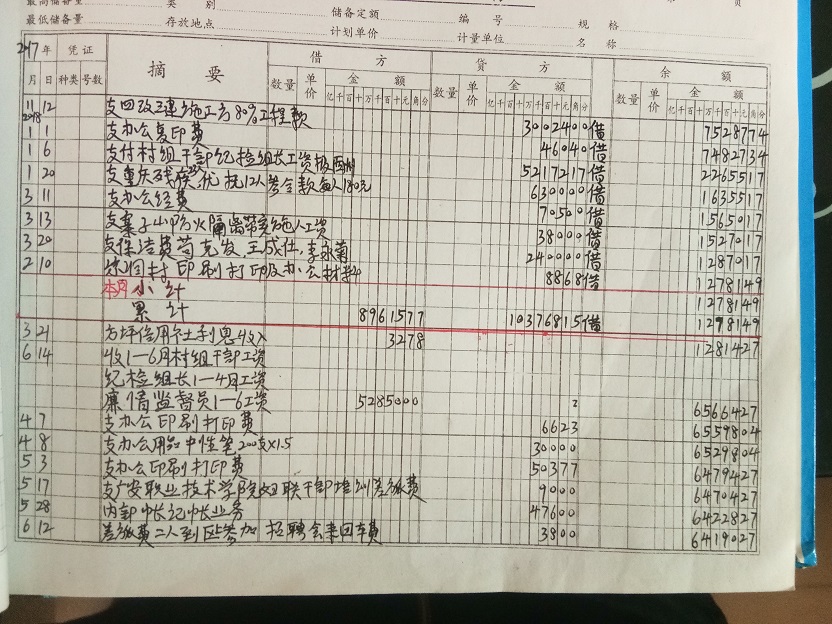 最高储备量 类 别 页
最低储备量 存放地点 储备定额 编 号 规 格
计划单价 计量单位 名 称
2017年 凭证 摘 要 借 方 贷 方 余 额
月 日 种类 号数 数量 单价 金 额 数量 单价 金 额 数量 单价 金 额
亿千百十万千百十元角分 亿千百十万千百十元角分 亿千百十万千百十元角分
11 12 支四改三建施工方80%工程款 3002400 借 7528774
2018
1 1 支办公复印费 46040 借 7482734
1 6 支付村组干部纪检组长工资 5217217 借 2265517
1 20 支重庆残疾优抚12人慰金款每人180元 630000 借 1635517
3 11 支办公经费 70500 借 1565017
3 13 支寨子山防火隔离带实施人工资 38000 借 1527017
3 20 支保洁费苟克发,王成仕,李永菊 240000 借 1287017
2 10 封印刷打印及办公材料 8868 借 1278149
本页小计 1278149
累计 8961577 10376815 借 1278149
3 21 方坪信用社利息收入 3278 1281427
6 14 收1—6月村组干部工资
纪检组长1—4月工资
廉情监督员1—6工资 5285000 6566427
4 7 支办公印刷打印费 6623 6559804
4 8 支办公用品中性笔200支×1.5 30000 6529804
5 3 支办公印刷打印费 50377 6479427
5 17 支广安职业技术学院妇联干部培训差旅费 9000 6470427
5 28 内部 业务 47600 6422827
6 12 差旅费二人到区参加招聘会来回车费 3800 6419027